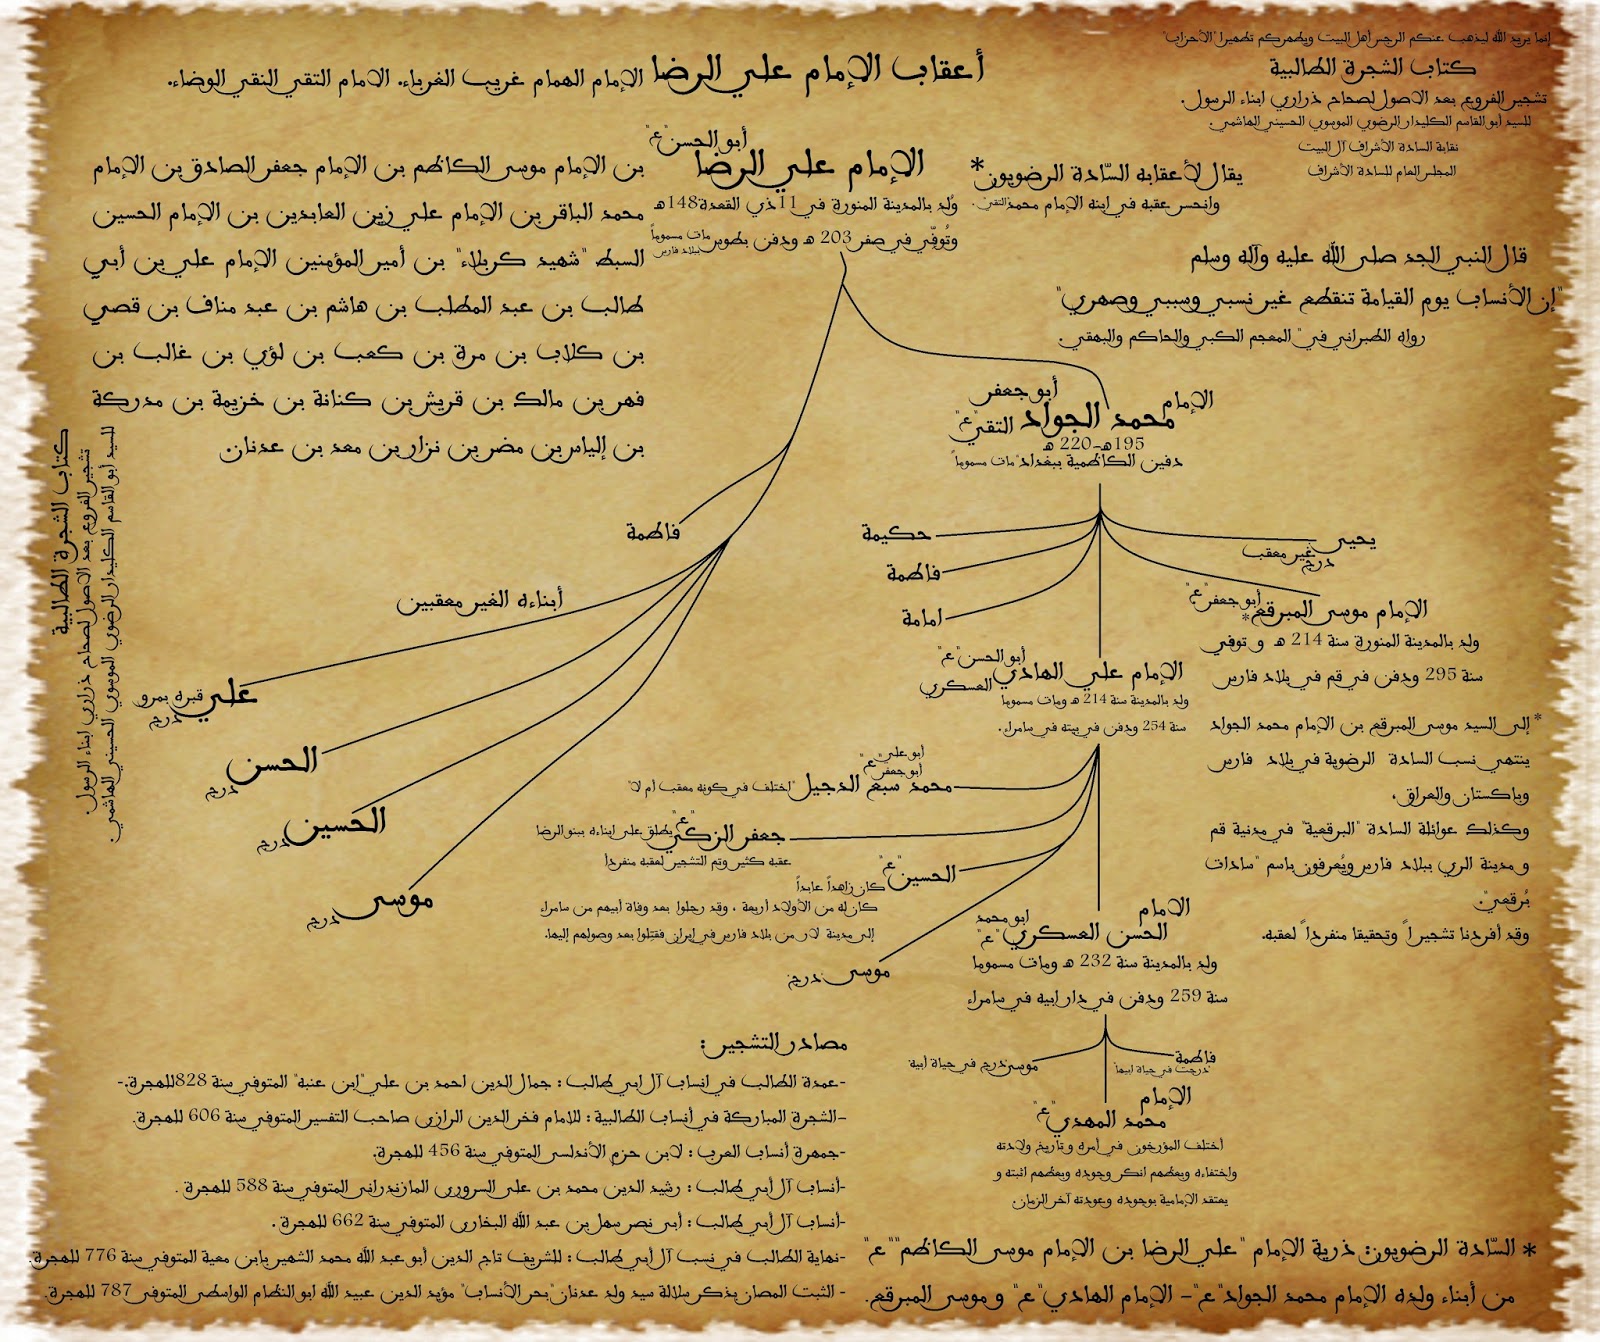 إنما يريد الله ليذهب عنكم الرجس أهل البيت ويطهركم تطهيرا "الأحزاب"
كتاب الشجرة الطالبية
تشجير الفروع بعد الاصول لصحاح ذراري ابناء الرسول.
للسيد أبو القاسم الكليدار الرضوي الموسوي الحسيني الهاشمي.
نقابة السادة الأشراف آل البيت
المجلس العام للسادة الأشراف
أعقاب الإمام علي الرضا الإمام الهمام غريب الغرباء. الامام التقي النقي الوضاء.
أبو الحسن"ع"
الإمام علي الرضا
وُلد بالمدينة المنورة في 11 ذي القعدة 148هـ
وتُوفّي في صفر 203 هـ ودفن بطوس مات مسموماً ببلاد فارس
بن الإمام موسى الكاظم بن الإمام جعفر الصادق بن الإمام
محمد الباقر بن الإمام علي زين العابدين بن الإمام الحسين
السبط "شهيد كربلاء" بن أمير المؤمنين الإمام علي بن أبي
طالب بن عبد المطلب بن هاشم بن عبد مناف بن قصي
بن كلاب بن مرة بن كعب بن لؤي بن غالب بن
فهر بن مالك بن قريش بن كنانة بن خزيمة بن مدركة
بن إلياس بن مضر بن نزار بن معد بن عدنان.
يقال لأعقابه السّادة الرضويون*
وانحسر عقبه في ابنه الإمام محمد التقي.
قال النبي الجد صلى الله عليه وآله وسلم
"إن الأنساب يوم القيامة تنقطع غير نسبي وسببي وصهري"
رواه الطبراني في" المعجم الكبي والحاكم والبهقي.
الإمام أبو جعفر
محمد الجواد التقي"ع"
195هـ-220 هـ
دفين الكاظمية ببغداد"مات مسموماً"
حكيمة
فاطمة
امامة
يحيى غير معقب
درج
الإمام موسى المبرقع* أبو جعفر"ع"
ولد بالمدينة المنورة سنة 214 هـ و توفي
سنة 295 ودفن في قم في بلاد فارس
* إلى السيد موسى المبرقع بن الإمام محمد الجواد
ينتهي نسب السادة الرضوية في بلاد فارس
وباكستان والعراق.
وكذلك عوائلة السادة "البرقعية" في مدنية قم
و مدينة الري ببلاد فارس ويُعرفون باسم "سادات
بُرقعي".
وقد أفردنا تشجيراً وتحقيقا منفرداً لعقبه.
أبو الحسن"ع"
الإمام علي الهادي العسكري
ولد بالمدينة سنة 214 هـ ومات مسموما
سنة 254 ودفن في بيته في سامراء.
أبو علي
أبو جعفر"ع"
محمد سبع الدجيل "اختلف في كونه معقب أم لا"
جعفر الزكي"ع" يطلق على ابناءه ببنو الرضا
عقبه كثير وتم التشجير لعقبه منفرداً
الحسين"ع" كان زاهداً عابداً
كان له من الأولاد أربعة ، وقد رحلوا بعد وفاة أبيهم من سامراء
إلى مدينة لار من بلاد فارس في إيران فقتلوا بعد وصولهم إليها.
موسى درج
الامام ابو محمد
الحسن العسكري "ع"
ولد بالمدينة سنة 232 هـ ومات مسموما
سنة 259 ودفن في دار ابيه في سامراء
فاطمة
درجت في حياة ابيها
موسى درج في حياة ابيه
الإمام
محمد المهدي"ع"
أختلف المؤرخون في أمره وتاريخ ولادته
واختفاءه وبعظهم انكر وجوده وبعظهم اثبته و
يعتقد الإمامية بوجوده وعودته آخر الزمان.
فاطمة
أبناءه الغير معقبين
علي قبره بمرو
درج
الحسن
درج
الحسين
درج
موسى
درج
كتاب الشجرة الطالبية
تشجير الفروع بعد الاصول لصحاح ذراري ابناء الرسول.
للسيد أبو القاسم الكليدار الرضوي الموسوي الحسيني الهاشمي.
مصادر التشجير:
-عمدة الطالب في انساب آل ابي طالب : جمال الدين احمد بن علي "ابن عنبة" المتوفي سنة 828للهجرة.-
-الشجرة المباركة في أنساب الطالبية : للامام فخر الدين الرازي صاحب التفسير المتوفي سنة 606 للهجرة.
-جمهرة أنساب العرب : لابن حزم الأندلسي المتوفي سنة 456 للهجرة.
-أنساب آل أبي طالب : رشيد الدين محمد بن علي السروري المازندراني المتوفي سنة 588 للهجرة .
-أنساب آل أبي طالب : أبي نصر سهل بن عبد الله البخاري المتوفي سنة 662 للهجرة .
-نهاية الطالب في نسب آل أبي طالب : للشريف تاج الدين أبو عبد الله محمد الشهير بابن معية المتوفي سنة 776 للهجرة.
- الثبت المصان بذكر سلالة سيد ولد عدنان"بحر الأنساب" مؤيد الدين عبيد الله ابو النظام الواسطي المتوفى 787 للهجرة.
* السّادة الرضويون: ذرية الإمام "علي الرضا بن الإمام موسى الكاظم""ع"
من أبناء ولده الإمام محمد الجواد"ع"- الإمام الهادي"ع" و موسى المبرقع.